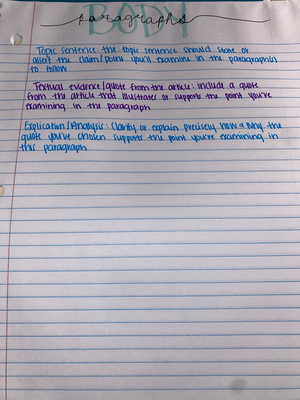 BODY
paragraphs
Topic sentence: the topic sentence should state or
assert the claim/point you'll examine in the paragraph(s)
to follow
Textual evidence/quote from the article: include a quote
from the article that illustrates or supports the point you're
examining in the paragraph
Explication/Analysis: Clarify or explain precisely how & why the
quote you've chosen supports the point you're examining in
this paragraph